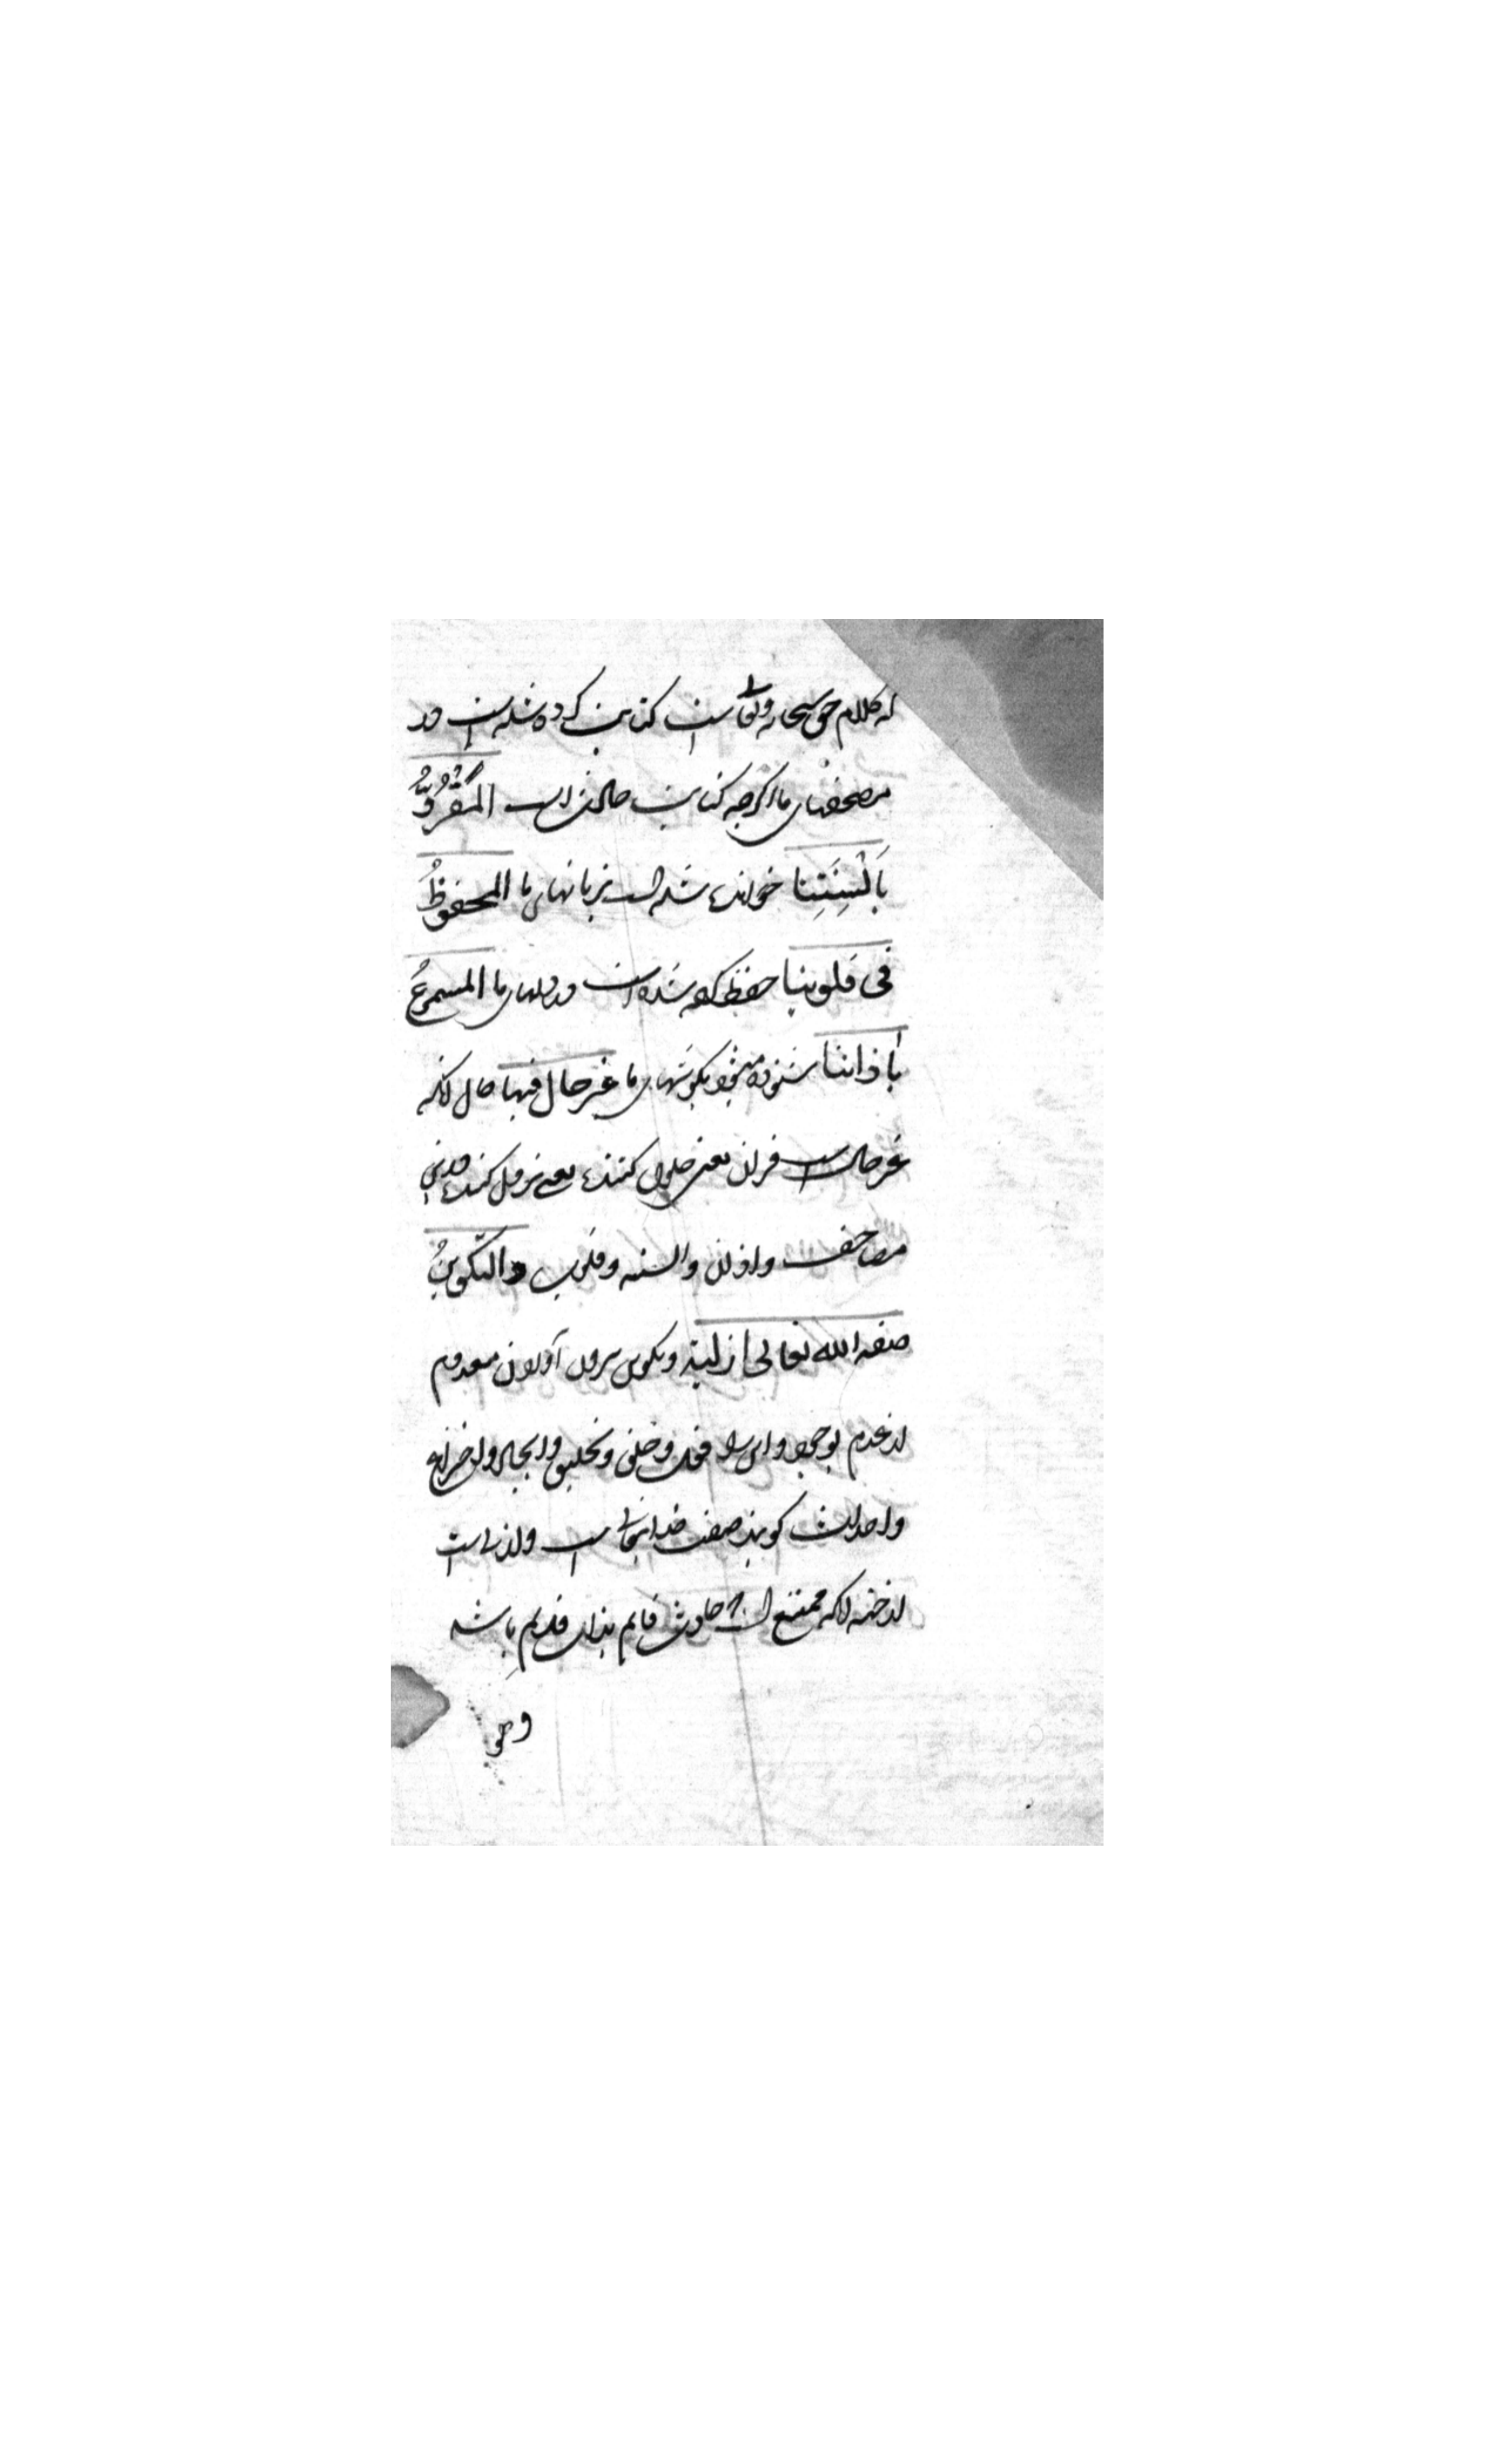 که کلام حق سبحانه وتعالی است کتابت کرده شده است در
مصحفهای ما اگرچه کتابت حالت است المَقْرُوُّ
بَالْسِنَتِنا خوانده شده است بزبانهای ما المحفوظُ
فی قلوبنا حفظ کرده شده است در دلهای ما المسموعُ
بأذاننا شنوده میشود بگوشهای ما غیر حال فیها حال آنکه
غیر حالست قرآن یعنی حلول کننده یعنی نزول کننده درین
مصاحف واذان والسنه وقلوب والتکوینُ
صفه الله تعالی ازلیة وتکوین بیرون آوردن معدوم
از عدم بوجود واین را فعل وخلق وتخلیق وایجاد واختراع
واحداث گویند صفت خدایتعالی است وازلی است
از جهته آنکه ممتنع است که حادث قایم بذات قدیم باشد
وحق